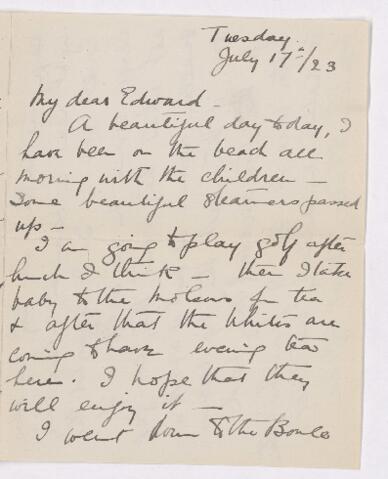 Tuesday.
July 17th/23
My dear Edward -
A beautiful day today, I
have been on the beach all
morning with the children -
Some beautiful steamers passed
up -
I am going to play golf after
lunch I think - then I take
baby to the Molsons for tea
& after that the Whites are
coming to have evening tea
here. I hope that they
will enjoy it -
I went down to the